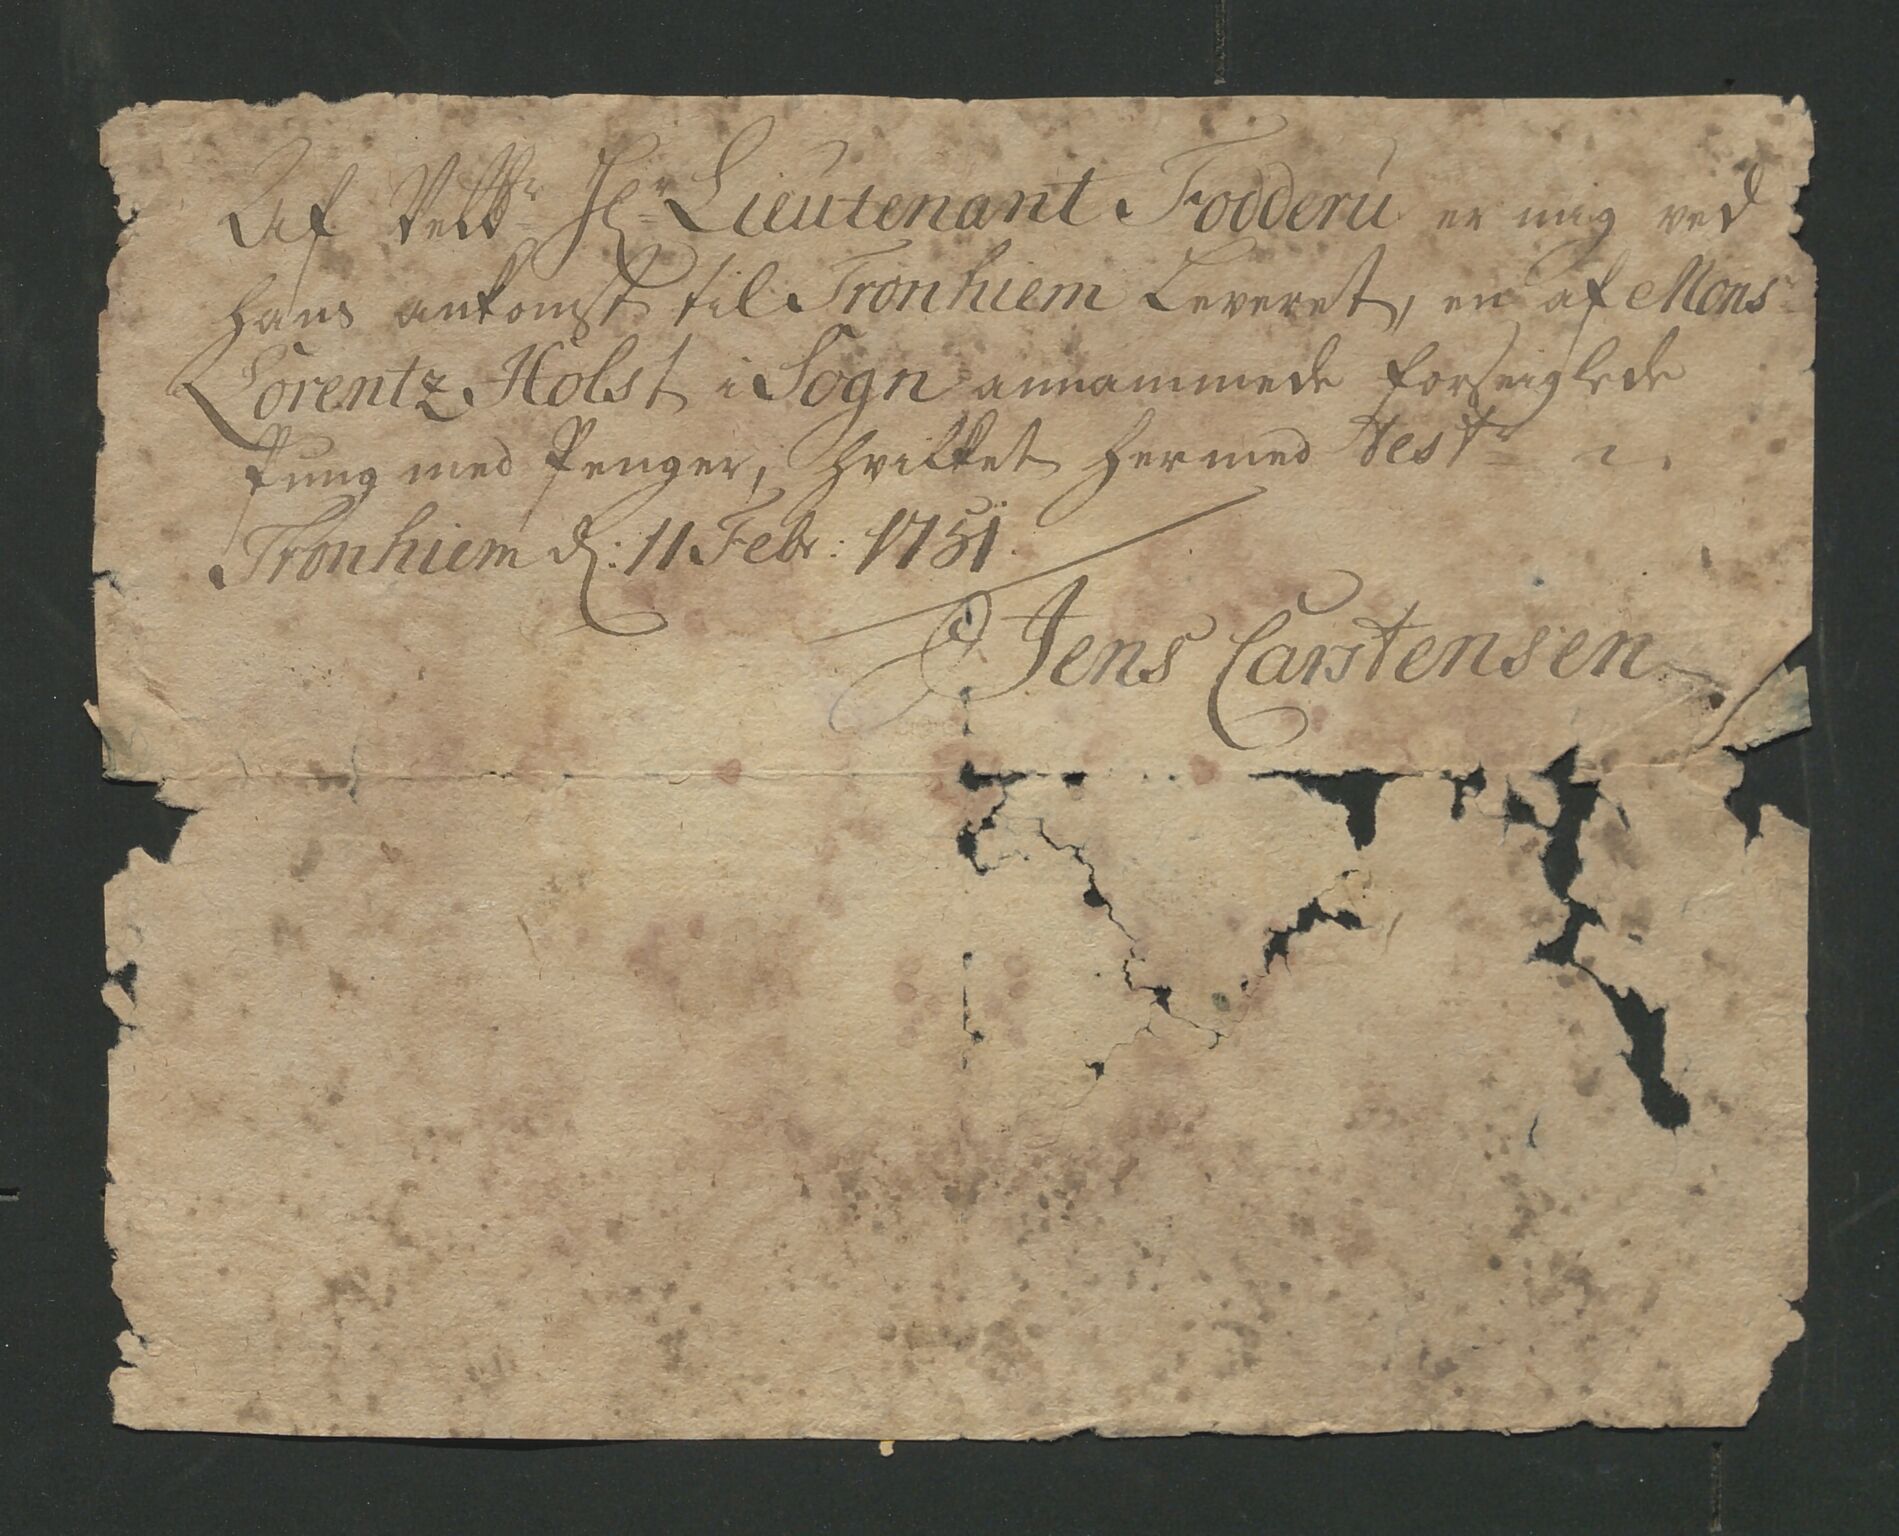 Af Velb:r Hr: Lieutenant Fodderu er mig ved
hans ankomst til Tronhiem Leveret, en af Mons:
Lorentz Holst i Sogn annammede forseiglede
Pung med Penger, hvilket hermed test:r
Tronhiem d: 11 Febr: 1751.
Jens Carstensen